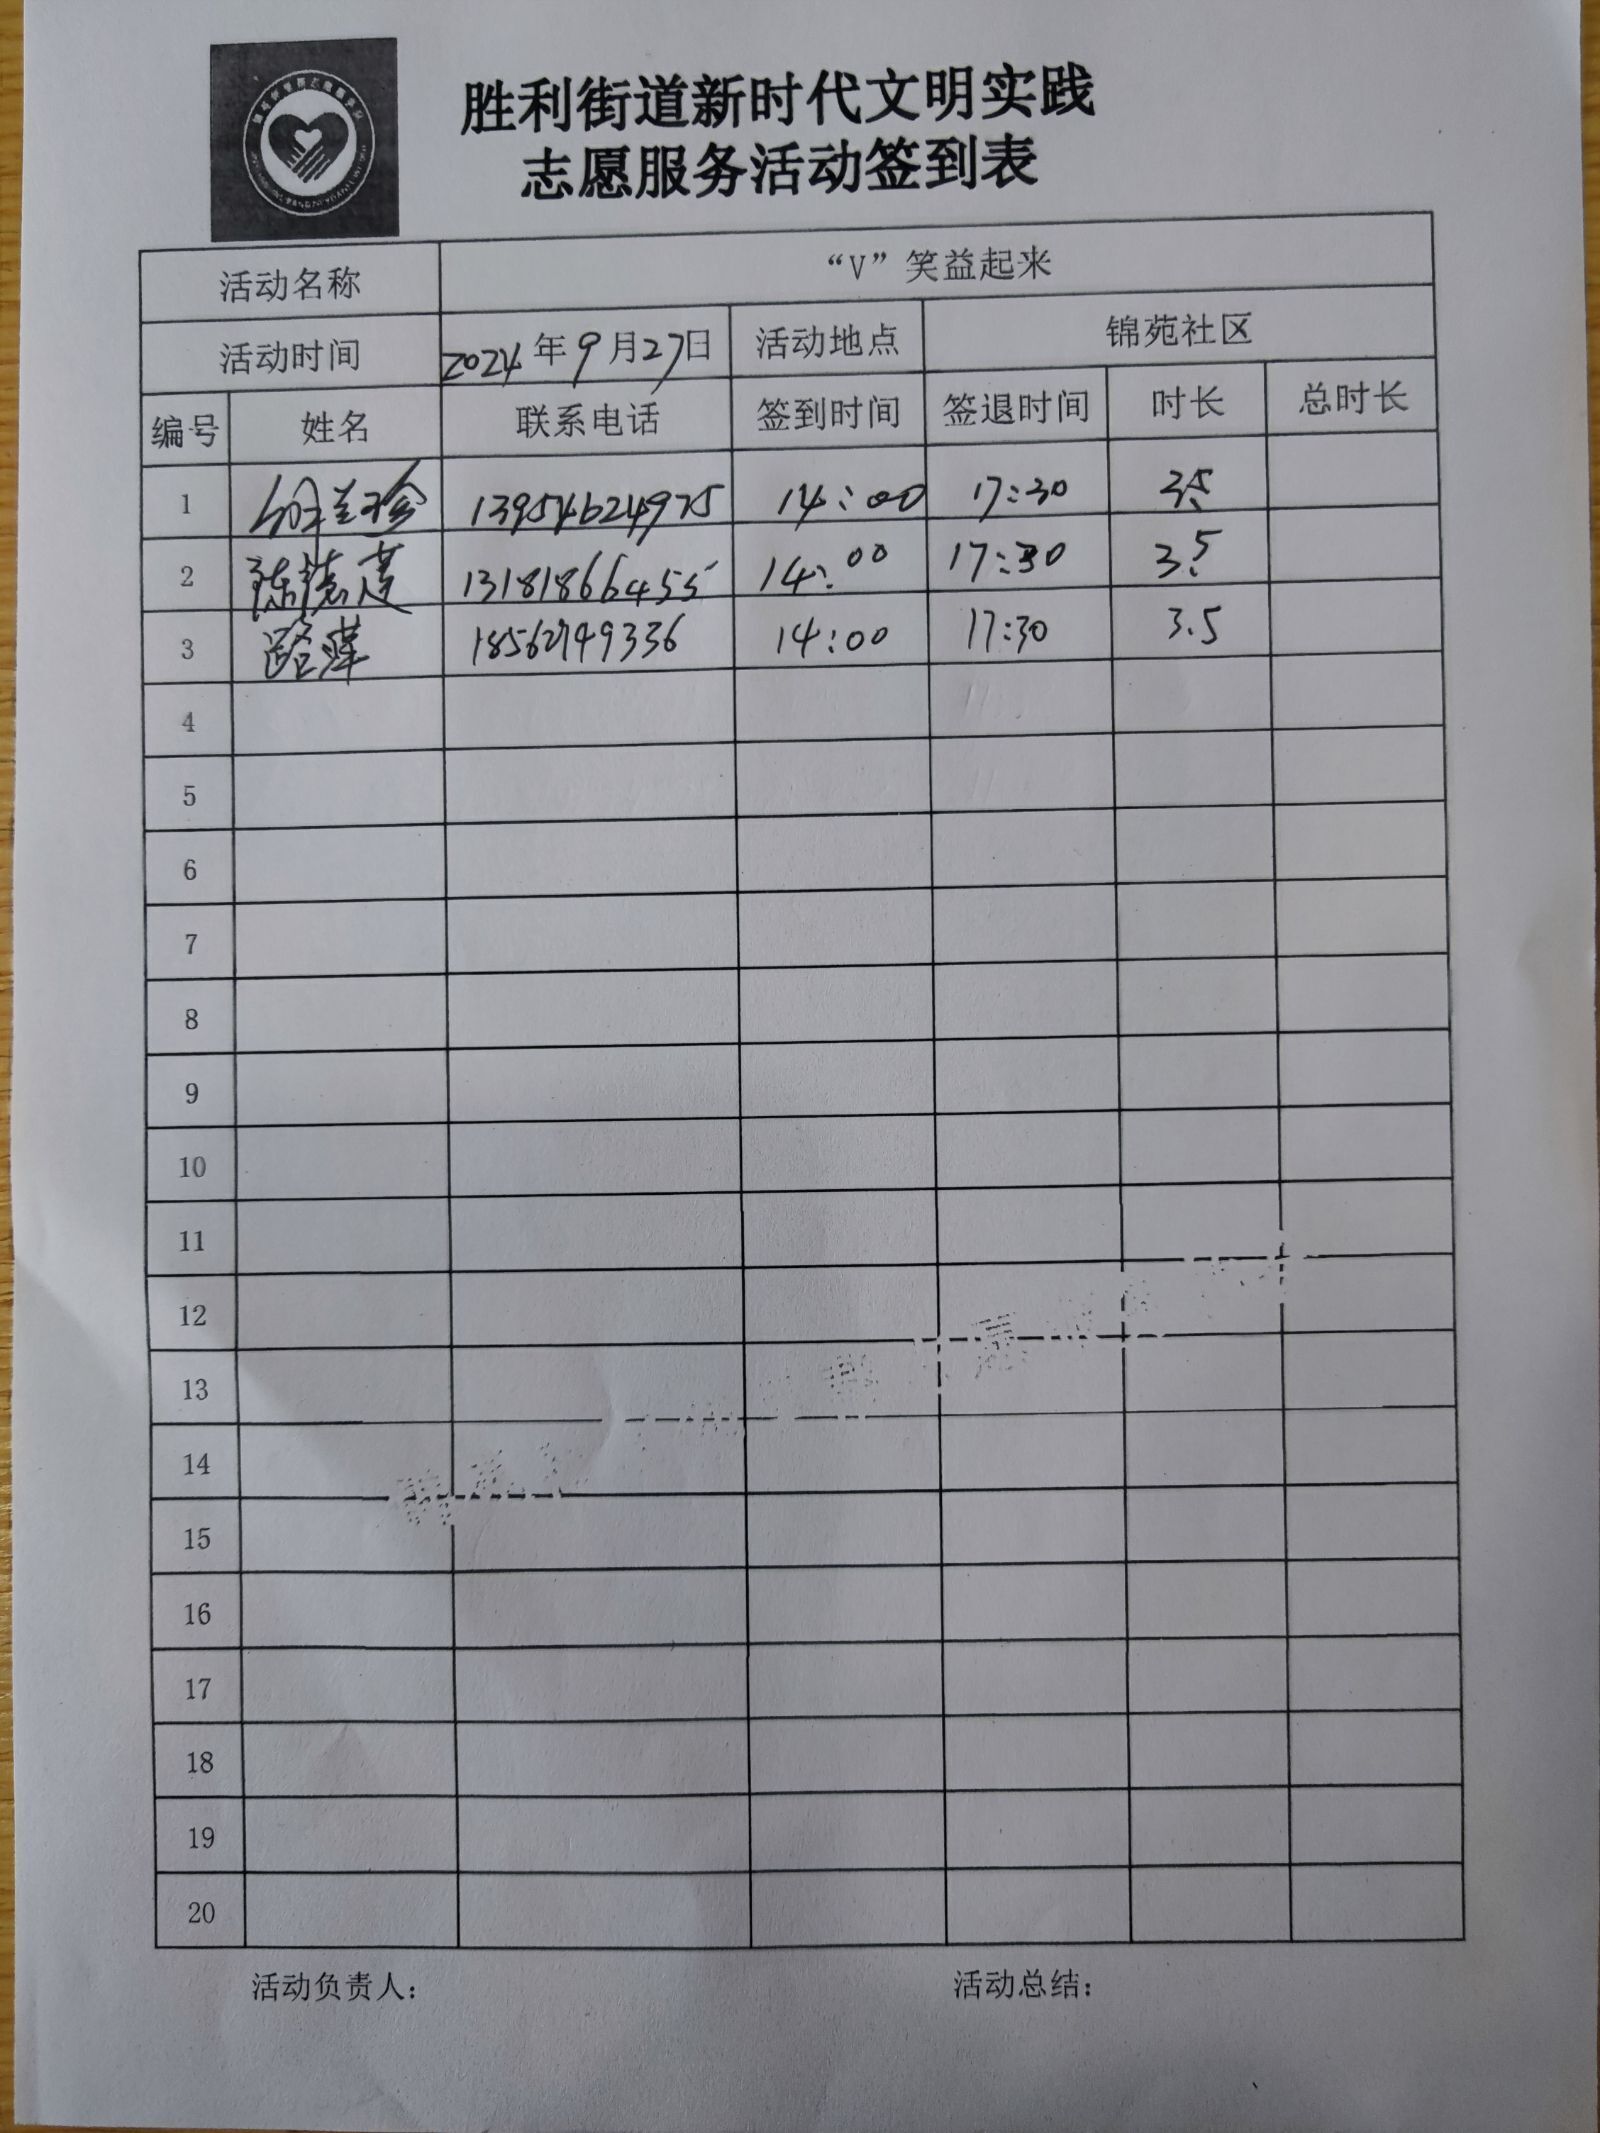 胜利街道新时代文明实践
志愿服务活动签到表
活动名称 “V”笑益起来
活动时间 2024年9月27日 活动地点 锦苑社区
编号 姓名 联系电话 签到时间 签退时间 时长 总时长
1 13954624975 14:00 17:30 3.5
2 13181866455 14:00 17:30 3.5
3 路萍 18562149336 14:00 17:30 3.5
4
5
6
7
8
9
10
11
12
13
14
15
16
17
18
19
20
活动负责人: 活动总结: